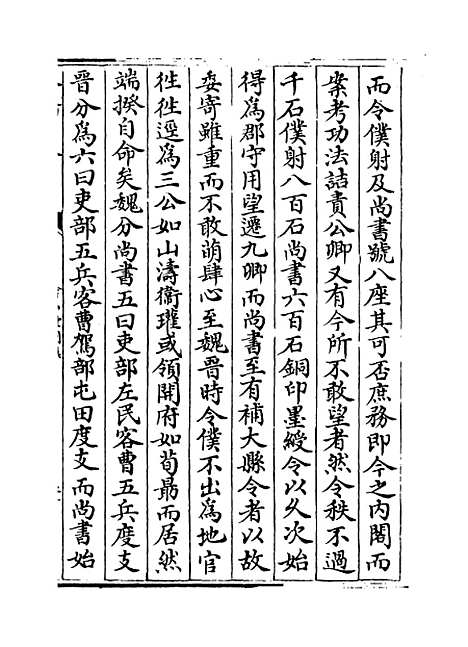 而令僕射及尚書號八座其可否庶務即今之内閣而
案考功法詰責公卿又有今所不敢望者然令秩不過
千石僕射八百石尚書六百石銅印墨綬令以久次始
得為郡守用望遷九卿而尚書至有補大縣令者以故
委寄雖重而不敢萌肆心至魏晉時令僕不出為地官
徃徃遷為三公如山濤衞瓘或領開府如荀勗而居然
端揆自命矣魏分尚書五曰吏部左民客曹五兵度支
晉分為六曰吏部五兵客曹駕部屯田度支而尚書始